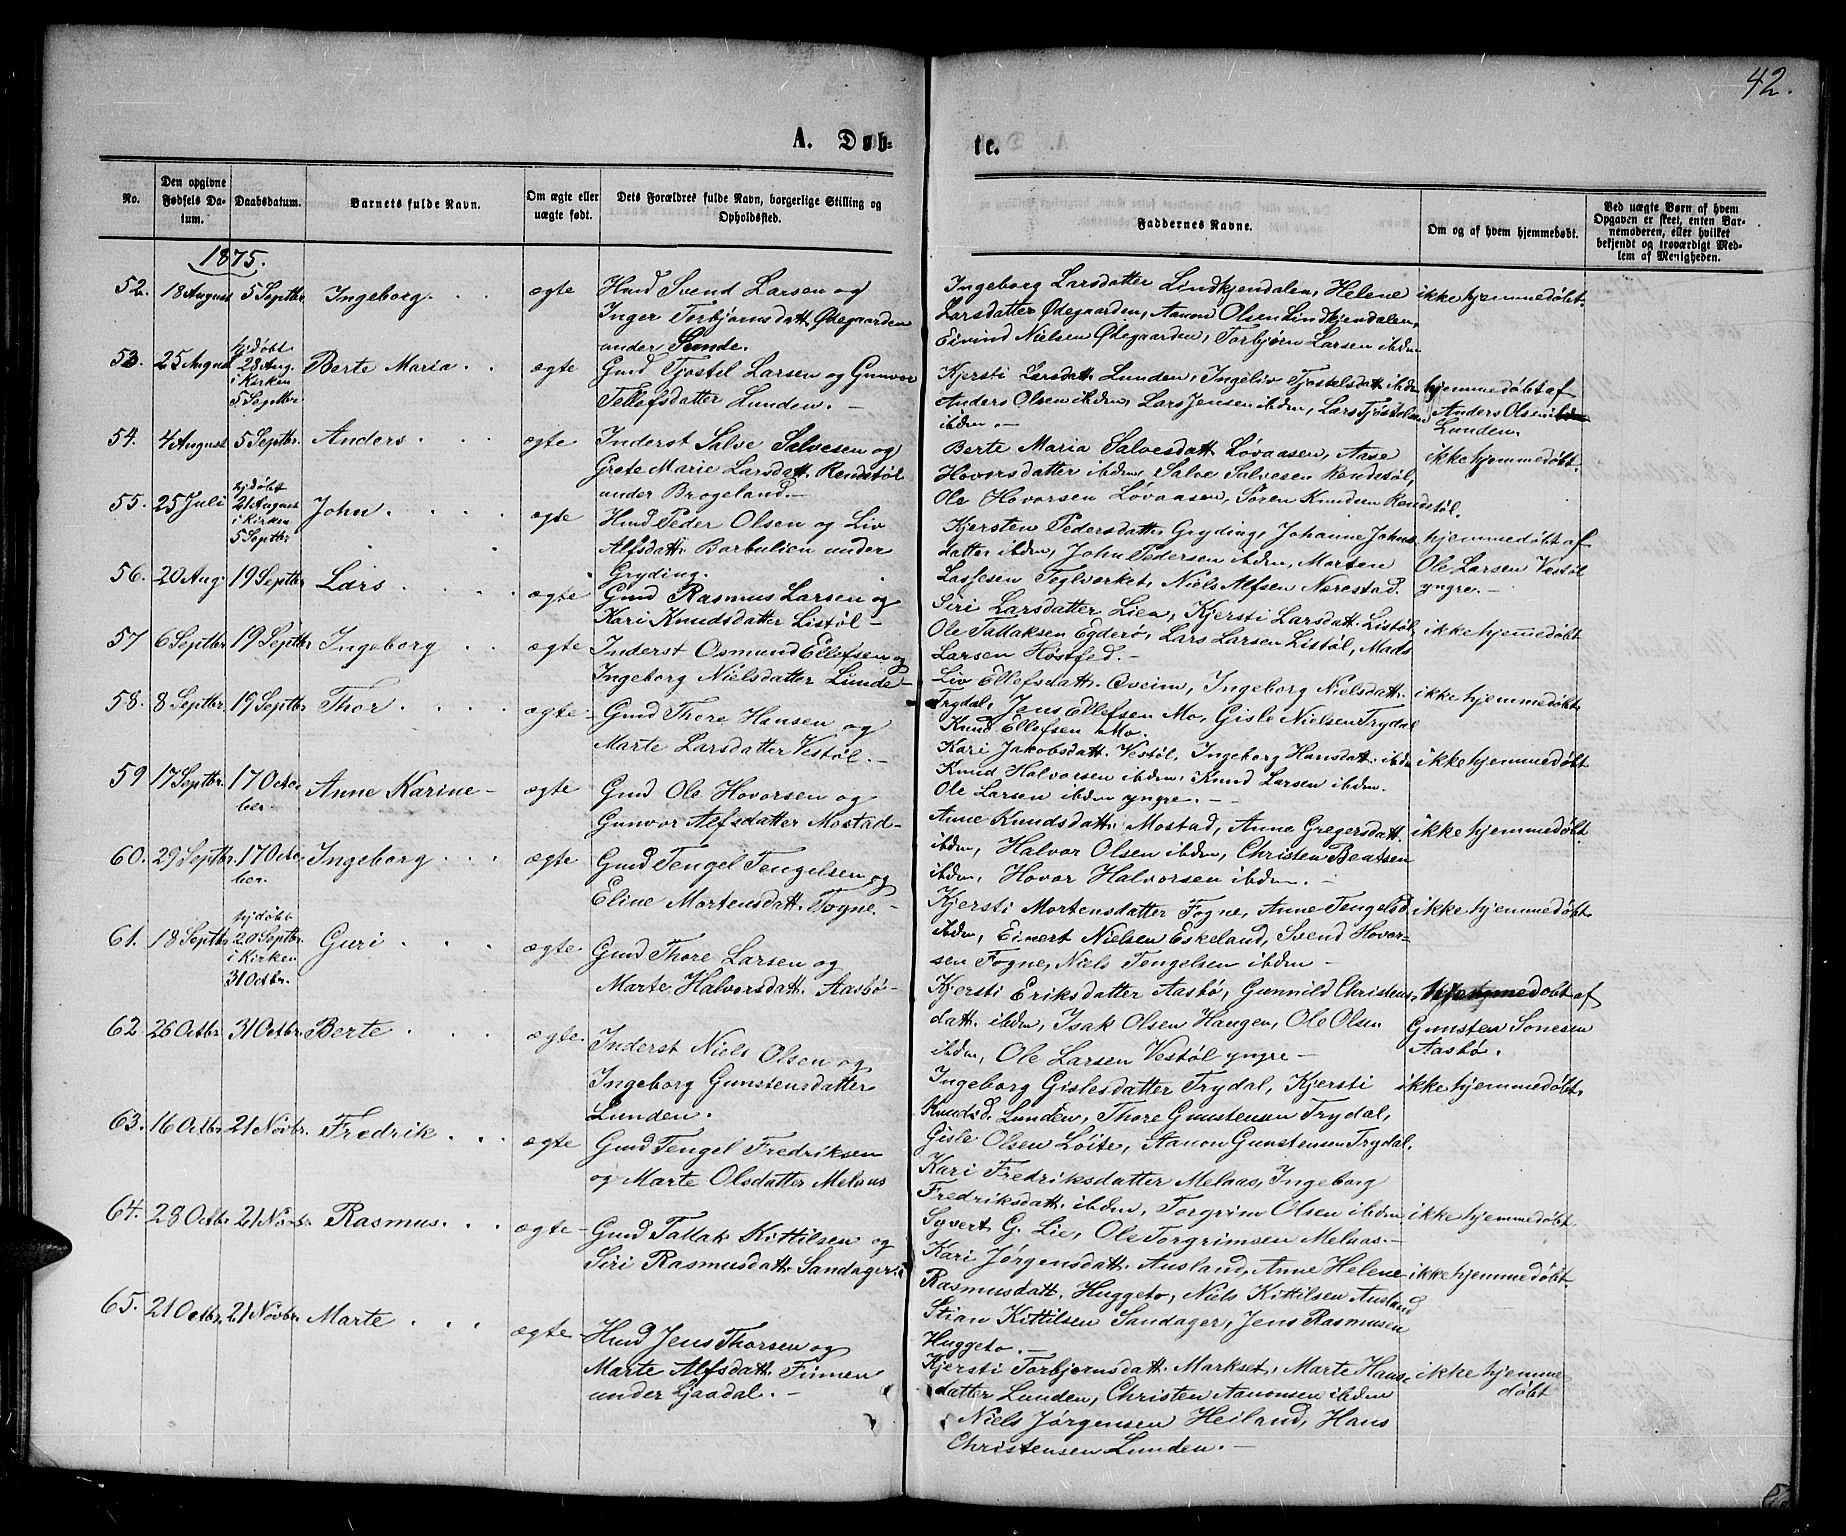 42.
A. Døb-
te.
No.
Den opgivne Fødsels Da-
tum.
Daabsdatum.
Barnets fulde Navn.
Om ægte eller uægte født.
Dets Forældres fulde Navn, borgerlige Stilling og Opholdssted.
Faddernes Navne.
Om og af hvem hjemmedøbt.
Ved uægte Børn af hvem Opgaven er skeet, enten Bar-
nemoderen, eller hvilket bekjendt og troværdigt Med-
lem af Menigheden.
1875.
52. 18 August 5 Septbr. Ingeborg. ægte Hmd Svend Larsen og
Inger Torbjørnsdatt. Ødegaarden
under Sunde.
Ingeborg Larsdatter Lindkjendalen, Helene
Larsdatter Ødegaarden, Aanon Olsen Lindkjendalen,
Eivind Nielsen Ødegaarden, Torbjørn Larsen ibdm
ikke hjemmedøbt.
53. 25 August hjdøbt
28 Aug.
i Kirken
5 Septbr
Berte Maria ægte Gmd Tjostel Larsen og Gunvor
Tellefsdatter Lunden. -
Kjersti Larsdatt. Lunden, Ingeliv Tjostelsdatt. ibdm
Anders Olsen ibdm, Lars Jensen ibdm, Lars Tjostelsen
ibdm. -
hjemmedøbt af
Anders Olsen ibdm
Lunden.
54. 4 August 5 Septbr. Anders ægte Inderst Salve Salvesen og
Grete Marie Larsdatt. Rendstøl
under Brøgeland. -
Berte Maria Salvesdatt Løvaasen, Aase
Hovorsdatter ibdm, Salve Salvesen Rendstøl,
Ole Hovorsen Løvaasen, Søren Knudsen Rendstøl.
ikke hjemmedøbt.
55. 25 Juli hjdøbt
21 August
i Kirken
5 Septbr
John. ægte Hmd Peder Olsen og Liv
Alfsdatt. Barbulien under
Gryding.
Kjersten Pedersdatt. Gryding, Johanne Johns
datter ibdm, John Pedersen ibdm, Morten
Lassesen Teglverket, Niels Alfsen Nærestad.
hjemmedøbt af
Ole Larsen Vestøl
yngre. -
56. 20 Aug. 19 Septbr. Lars ægte Gmd Rasmus Larsen og
Kari Knudsdatter Listøl -
Siri Larsdatter Lien, Kjersti Larsdatt. Listøl,
Ole Tallaksen Egderø, Lars Larsen Listøl, Mads
Larsen Høstfed. -
ikke hjemmedøbt
57 6 Septbr 19 Septbr. Ingeborg ægte Inderst Osmund Ellefsen og
Ingeborg Nielsdatter Lunde -
Liv Ellefsdatt. Øveim, Ingeborg Nielsdatt.
Trydal, Jens Ellefsen Mo, Gisle Nielsen Trydal
Knud Ellefsen Mo.
ikke hjemmedøbt.
58. 8 Septbr. 19 Septbr. Thor. ægte Gmd Thore Hansen og
Marte Larsdatter Vestøl. -
Kari Jakobsdatt. Vestøl, Ingeborg Hansdatt. ibdm
Knud Halvorsen ibdm, Knud Larsen ibdm.
Ole Larsen ibdm yngre. -
ikke hjemmedøbt.
59 17 Septbr. 17 Octo-
ber.
Anne Karine - ægte Gmd Ole Hovorsen og
Gunvor Alfsdatter Mostad -
Anne Knudsdatt. Mostad, Anne Gregersdatt.
ibdm, Halvor Olsen ibdm, Christen Beatsen
ibdm, Hovor Halvorsen ibdm. -
ikke hjemmedøbt.
60. 29 Septbr. 17 Octo-
ber.
Ingeborg ægte Gmd Tengel Tengelsen og
Eline Mortensdatt. Fogne. -
Kjersti Mortensdatter Fogne, Anne Tengelsd
ibdm, Einert Nielsen Eskeland, Svend Hovor-
sen Fogne, Niels Tengelsen ibdm -
ikke hjemmedøbt.
61. 18 Septbr hjdøbt
20 Septbr.
i Kirken
31 Octbr.
Guri ægte Gmd Thore Larsen og
Marte Halvorsdatt. Aasbø -
Kjersti Eriksdatter Aasbø, Gunnild Christens
datt. ibdm, Isak Olsen Haugen, Ole Olsen
ibdm, Ole Larsen Vestøl yngre -
hjemmedøbt af
Gunsten Sonesen
Aasbø.
62 26 Octbr. 31 Octbr. Berte ægte. Inderst Niels Olsen og
Ingeborg Gunstensdatter
Lunden.
Ingeborg Gislesdatter Trydal, Kjersti
Knudsd. Lunden, Thore Gunstensen Trydal,
Gisle Olsen Løite, Aanon Gunstensen Trydal.
ikke hjemmedøbt.
63. 16 Octbr. 21 Novbr. Fredrik ægte Gmd Tengel Fredriksen
og Marte Olsdatter Melaas
Kari Fredriksdatter Melaas, Ingeborg
Fredriksdatt. ibdm, Torgrim Olsen ibdm
Syvert G. Lie, Ole Torgrimsen Melaas. -
ikke hjemmedøbt.
64. 28 Octbr. 21 Novbr. Rasmus. ægte - Gmd Tallak Kittilsen og
Siri Rasmusdatt. Sandager.
Kari Jørgensdatt. Ausland, Anne Helene
Rasmusdatt. Huggeto, Niels Kittilsen Ausland
Stian Kittilsen Sandager, Jens Rasmusen
Huggeto. -
ikke hjemmedøbt.
65. 21 Octbr. 21 Novbr. Marte ægte - Hmd Jens Thorsen og
Marte Alfsdatt. Finnen
under Gjaadal. -
Kjersti Torbjørnsdatt. Markset, Marte Hans-
datter Lunden, Christen Aanonsen ibdm
Niels Jørgensen Heiland, Hans
Christensen Lunden. -
ikke hjemme-
døbt